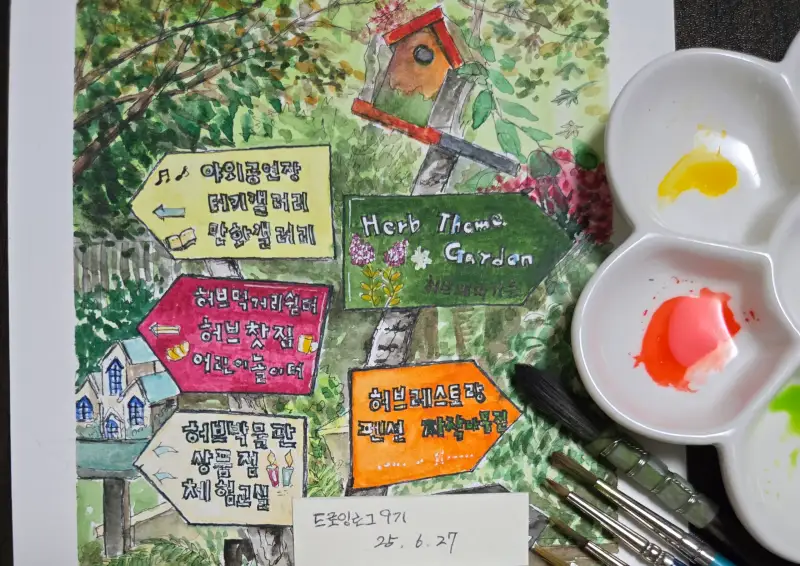 야외공연장
테키갤러리
만화갤러리
Herb Thema
Garden
허브먹거리쉼터
허브찻집
어린이놀이터
허브레스토랑
펜션 자작나무집
허브박물관
상품점
체험교실
드로잉로그9기
25. 6. 27